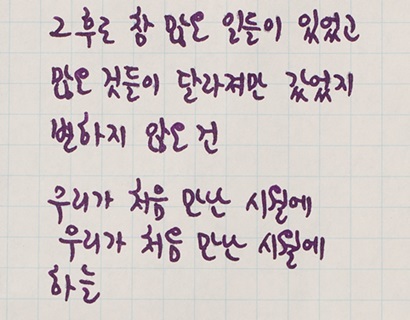 그 후로 참 많은 일들이 있었고
많은 것들이 달라져만 갔었지
변하지 않은 건
우리가 처음 만난 시월에
우리가 처음 만난 시월에
하늘